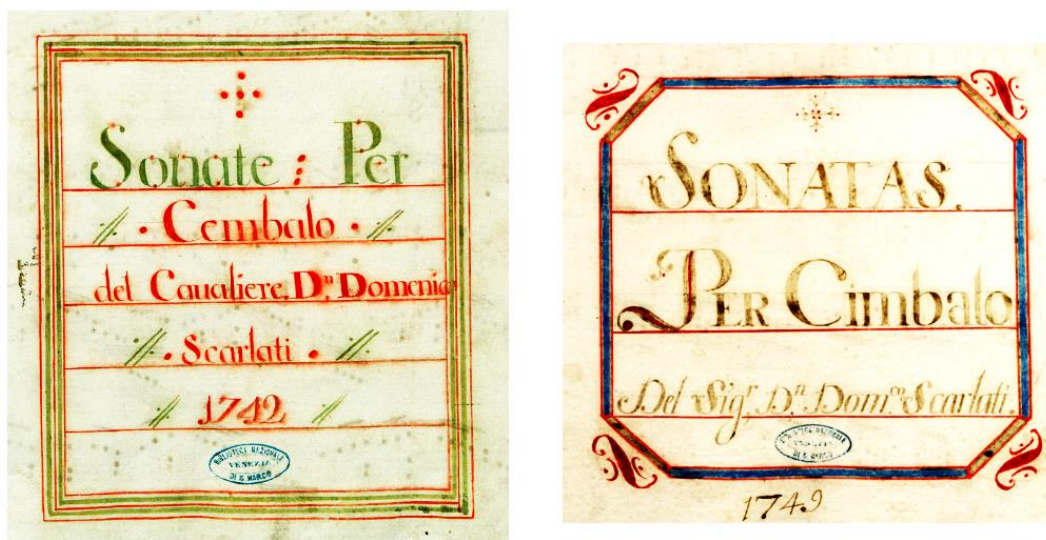 Sonate : Per
Cembalo
del Caualiere Dⁿ. Domenico
Scarlati
1742
BIBLIOTECA NAZIONALE
VENEZIA
DI S. MARCO
SONATAS.
PER Cimbalo
Del Sigʳ. Dⁿ. Domᶜᵒ Scarlati.
VENEZIA
DI S. MARCO
1749